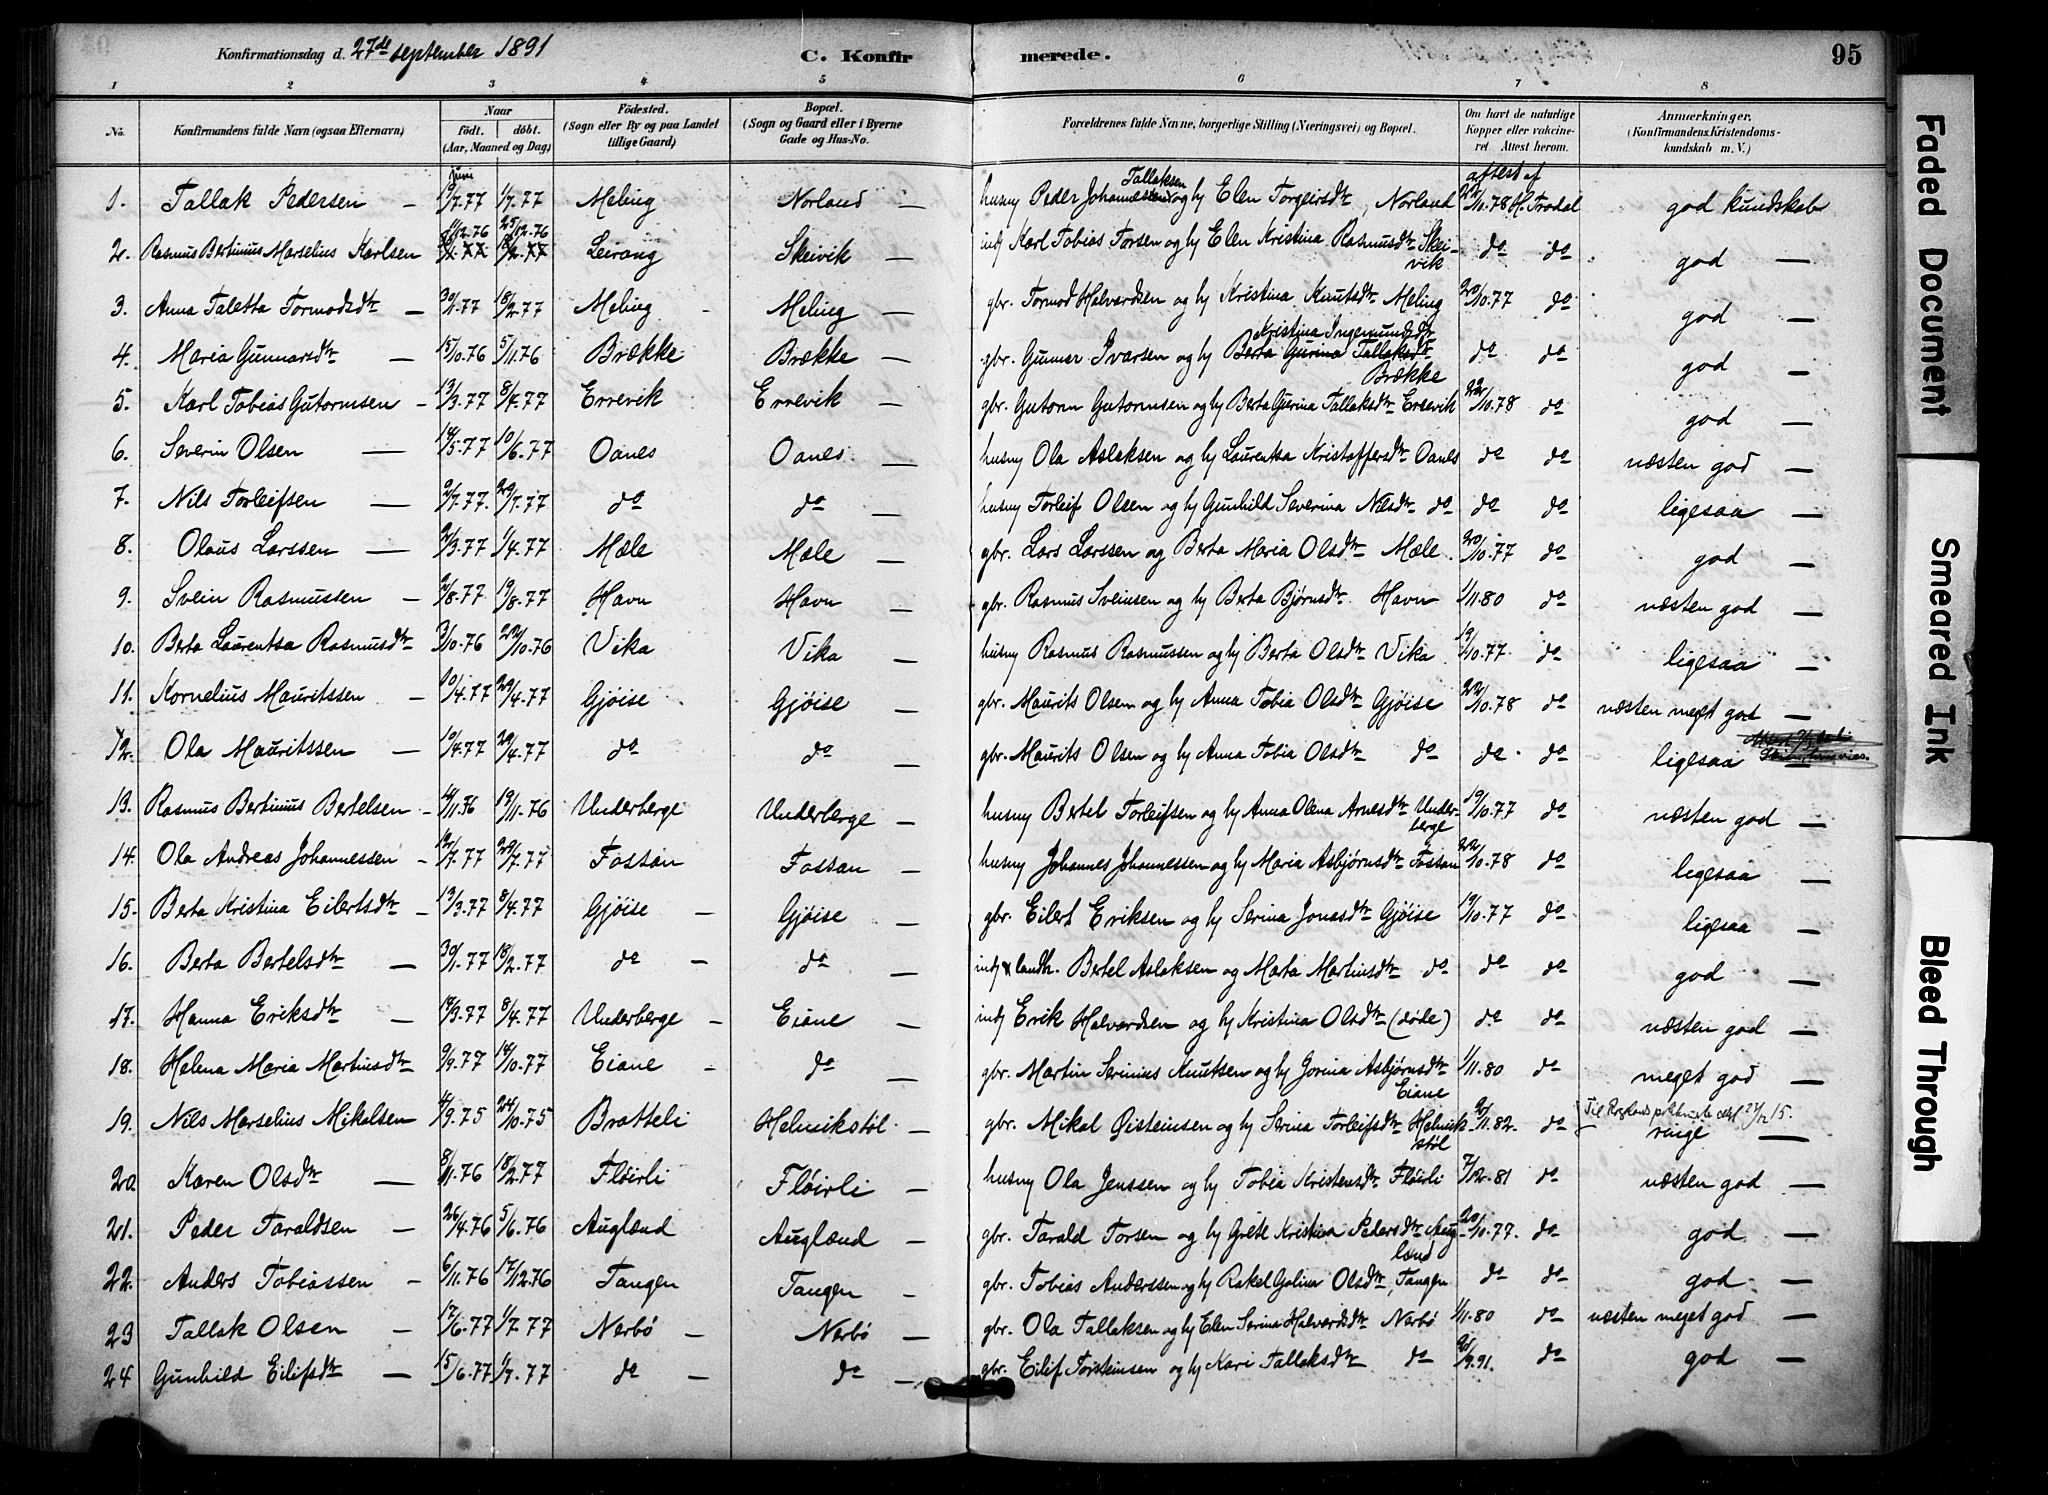 Konfirmationsdag d. 27de september 1891 C. Konfirmerede. 95
1 2 3 4 5 6 7 8
No. Konfirmandens fulde Navn (ogsaa Efternavn) Naar født. døbt. (Aar, Maaned og Dag) Fødested. (Sogn eller By og paa Landet tillige Gaard) Bopæl. (Sogn og Gaard eller i Byerne Gade og Hus-No. Forældrenes fulde Navne, borgerlige Stilling (Næringsvei) og Bopæl. Om havt de naturlige Kopper eller vaccineret. Attest herom. Anmærkninger. (Konfirmandens Kristendomskundskab m. V.)
juni Tallaksen attest af
1. Tallak Pedersen — 19/7.77 1/7.77 Meling Norland — husm Peder Johannessen og hy Elen Torgeirsdtr, Norland 22/10.78 H. Trodal god kundskab
11/12.76 25/12.76
2. Rasmus Bertinius Marselius Karlsen Leirang Skeivik — indj Karl Tobias Torsen og hy Elen Kristina Rasmusdtr Skeivik do do god —
3. Anna Taletta Tormodsdtr — 30/1.77 18/2.77 Meling - Meling — gbr. Tormod Halvardsen og hy Kristina Knutsdtr Meling 20/10.77 do god —
Kristina Ingemundsdtr
4. Maria Gunnarsdtr — 15/10.76 5/11.76 Brække Brække — gbr. Gunnar Ivarsen og hy Berta Gurina Tallaksdtr Brække do do god —
5. Karl Tobias Gutormsen - 13/3.77 8/4.77 Errevik Errevik — gbr. Gutorm Gutormsen og hy Berta Gurina Tallaksdtr Errevik 22/10.78 do god —
6. Severin Olsen — 14/5.77 10/6.77 Oanes Oanes — husm Ola Aslaksen og hy Laurentsa Kristoffersdtr Oanes do do næsten god —
7. Nils Torleifsen — 2/7.77. 29/7.77 do do — husm Torleif Olsen og hy Gunhild Severina Nilsdtr do do do ligesaa —
8. Olaus Larssen — 2/3.77 1/4.77 Mæle Mæle — gbr. Lars Larssen og Berta Maria Olsdtr Mæle. 20/10.77 do god —
9. Svein Rasmussen — 2/8.77 19/8.77 Havn Havn — gbr. Rasmus Sveinsen og hy Berta Bjørnsdtr Havn 1/11.80 do næsten god —
10. Berta Laurentsa Rasmusdtr 3/10.76 22/10.76 Vika Vika — husm Rasmus Rasmussen og hy Berta Olsdtr Vika 19/10.77 do ligesaa —
11. Kornelius Mauritssen — 10/4.77 29/4.77 Gjøise Gjøise — gbr. Maurits Olsen og hy Anna Tobia Olsdtr Gjøise 22/10.78 do næsten meget god —
12. Ola Mauritssen — 10/4.77 29/4.77 do do — gbr. Maurits Olsen og hy Anna Tobia Olsdtr do do do ligesaa —
13. Rasmus Bertinius Bertelsen — 4/11.76 19/11.76 Underberge Underberge — husm Bertel Torleifsen og hy Anna Olena Arnesdtr Underberge 19/10.77 do næsten god —
14. Ola Andreas Johannessen — 12/7.77 29/7.77 Fossan Fossan — husm Johannes Johannessen og hy Maria Asbjørnsdtr Fossan 22/10.78 do ligesaa —
15. Berta Kristina Eilertsdtr — 13/3.77 8/4.77 Gjøise — Gjøise — gbr. Eilert Eriksen og hy Serina Jonasdtr Gjøise 19/10.77 do ligesaa —
16. Berta Bertelsdtr — 30/1.77 18/2.77 do — do — indj & landh. Bertel Aslaksen og Marta Martinsdtr do do do god —
17. Hanna Eriksdtr — 14/3.77 8/4.77 Underberge — Eiane — indj Erik Halvardsen og hy Kristina Olsdtr (døde) do do næsten god —
18. Helena Maria Martinsdtr 9/9.77 14/10.77 Eiane — do — gbr. Martin Serinius Knutsen og hy Jorina Asbjørnsdtr Eiane 1/11.80 do meget god —
19. Nils Marselius Mikalsen 4/9.75 24/10.75 Bratteli Helmikstøl — gbr. Mikal Øisteinsen og hy Serina Torleifsdtr Helmikstøl 20/11.82. do ringe —
20 Karen Olsdtr — 8/11.76 18/2.77 Fløirli Fløirli — husm Ola Jenssen og hy Tobia Kristensdtr Fløirli 7/12.81 do næsten god —
21. Peder Taraldsen — 26/4.76 5/6.76 Auglænd Auglænd — gbr. Tarald Torsen og hy Grete Kristina Pedersdtr Auglænd 20/10.77. do god —
22. Anders Tobiassen — 6/11.76 17/12.76 Tangen Tangen — gbr. Tobias Anderssen og hy Rakel Golina Olsdtr, Tangen do do god. —
23 Tallak Olsen — 17/6.77 1/7.77 Nerbø — Nerbø — gbr. Ola Tallaksen og hy Elen Serina Halvardsdtr Nerbø 1/11.80 do næsten meget god —
24 Gunhild Eilifsdtr — 15/6.77 1/7.77 do — do — gbr. Eilif Torsteinsen og hy Kari Tallaksdtr do 26/9.91. do god —
Faded Document
Smeared Ink
Bleed Through